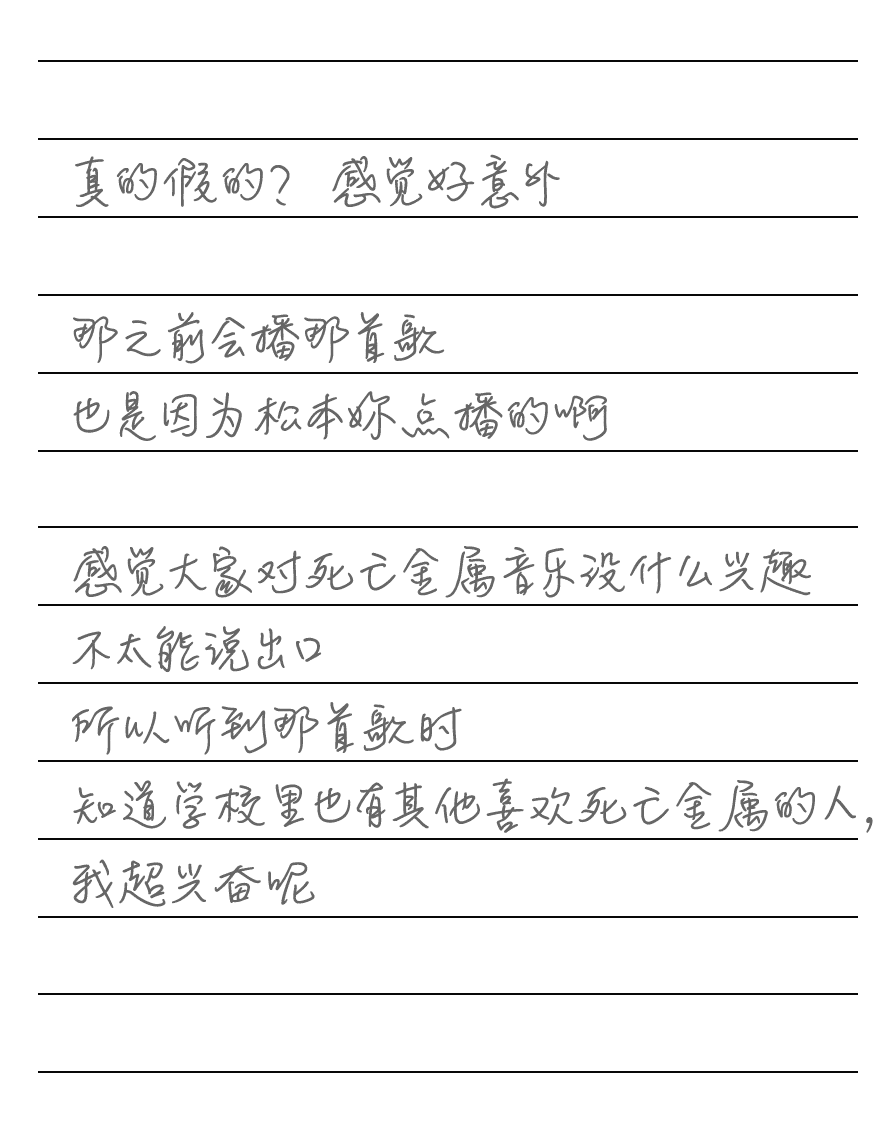 真的假的? 感觉好意外
那之前会播那首歌
也是因为松本妳点播的啊
感觉大家对死亡金属音乐没什么兴趣
不太能说出口
所以听到那首歌时
知道学校里也有其他喜欢死亡金属的人,
我超兴奋呢